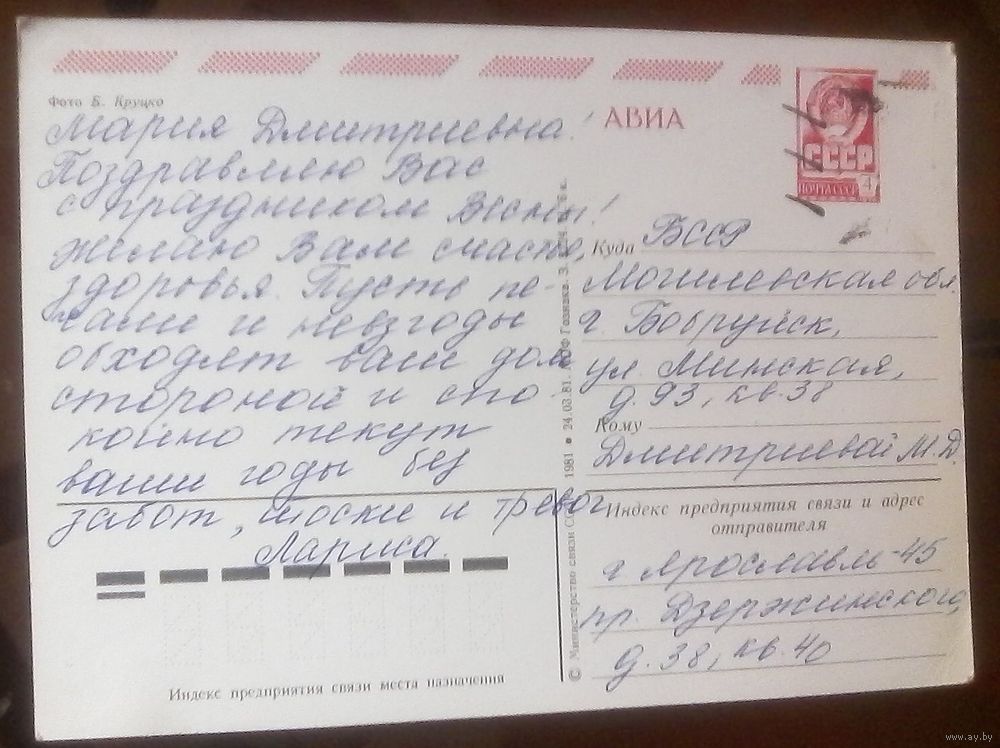 Фото Б. Круцко
Мария Дмитриевна!
Поздравляю Вас
с праздником Весны!
Желаю Вам счастья,
здоровья. Пусть пе-
чали и невзгоды
обходят ваш дом
стороной и спо-
койно текут
ваши годы без
забот, тоски и тревог
Лариса.
Индекс предприятия связи места назначения
© Министерство связи 1981 • 24.03.81. Гознака.
АВИА
СССР
ПОЧТА СССР 4
Куда БССР
Могилевская обл.
г. Бобруйск,
ул. Минская,
д. 93, кв. 38
Кому
Дмитриевой М.Д.
Индекс предприятия связи и адрес
отправителя
г Ярославль-45
пр. Дзержинского,
д. 38, кв. 40
www.ay.by